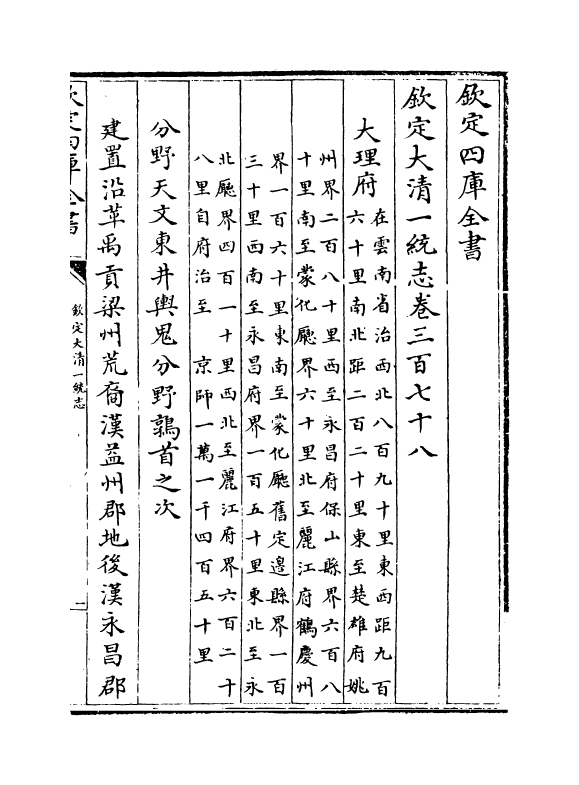 欽定四庫全書
欽定大清一統志卷三百七十八
大理府在雲南省治西北八百九十里東西距九百
六十里南北距二百二十里東至楚雄府姚
州界二百八十里西至永昌府保山縣界六百八
十里南至蒙化廳界六十里北至麗江府鶴慶州
界一百六十里東南至蒙化廳舊定邊縣界一百
三十里西南至永昌府界一百五十里東北至永
北廳界四百一十里西北至麗江府界六百二十
八里自府治至 京師一萬一千四百五十里
分野天文東井輿鬼分野鶉首之次
建置沿革禹貢梁州荒裔漢益州郡地後漢永昌郡
欽定四庫全書
欽定大清一統志